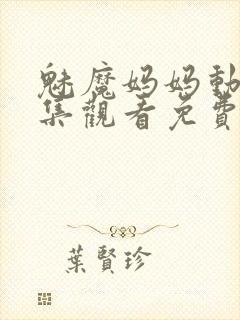 魅魔妈妈動
集觀看免費
葉賢珍